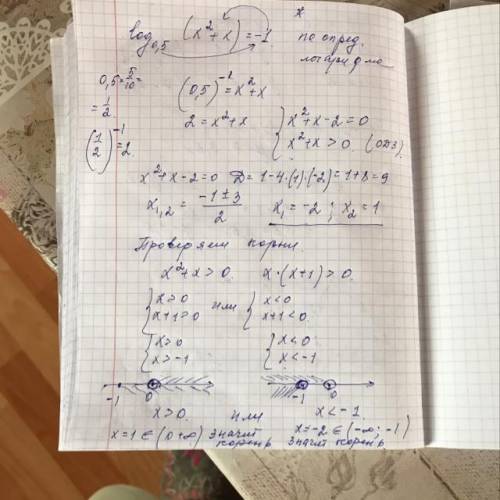 log₀,₅ (x² + x) = -1 по опред. логарифма
0,5 = 5/10 =
= 1/2
(1/2)⁻¹ = 2
(0,5)⁻¹ = x² + x
2 = x² + x
{ x² + x - 2 = 0
{ x² + x > 0 (ОДЗ)
x² + x - 2 = 0 Д = 1 - 4·(1)·(-2) = 1 + 8 = 9
x₁,₂ = (-1 ± 3)/2 x₁ = -2 ; x₂ = 1
Проверяем корни
x² + x > 0 x·(x+1) > 0
{ x > 0 или { x < 0
{ x + 1 > 0 { x + 1 < 0
{ x > 0 { x < 0
{ x > -1 { x < -1
-1 0 -1 0
x > 0 или x < -1
x = 1 ∈ (0 +∞) значит корень x = -2 ∈ (-∞; -1) значит корень